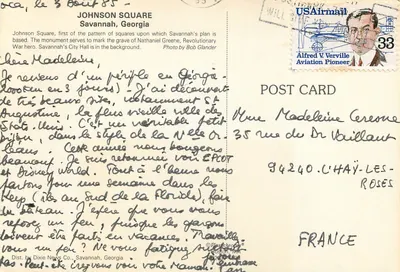 oca, le 3 Août 85 -
JOHNSON SQUARE
Savannah, Georgia
Johnson Square, first of the pattern of squares upon which Savannah's plan is
based. The monument serves to mark the grave of Nathaniel Greene, Revolutionary
War hero. Savannah's City Hall is in the background. Photo by Bob Glander
Chère Madeleine,
Je reviens d'un périple en Géorgie
(2000 km en 3 jours). J'ai découvert
de très beaux sites, notamment St
Augustine, la plus vieille ville des
Etats-Unis. C'est un véritable petit
bijou, dans le style de la Nelle Or-
léans. Cette année nous bougeons
beaucoup. Je suis retournée voir EPCOT
et Disney world. Tout à l'heure nous
partons pour une semaine dans les
Keys (îles au Sud de la Floride), faire
du bateau. J'espère que vous vous
reposez un peu, puisque les garçons
doivent être partis en vacances. Travaillez
vous un peu? Ne vous fatiguez
pas. Peut-être irez-vous voir votre Maman.
Dist. by Dixie News Co., Savannah, Georgia
USAirmail
Alfred V. Verville
Aviation Pioneer
33
POST CARD
Mme Madeleine
35 rue du Dr Vaillant
94240 - L'HAŸ-LES-
ROSES
FRANCE